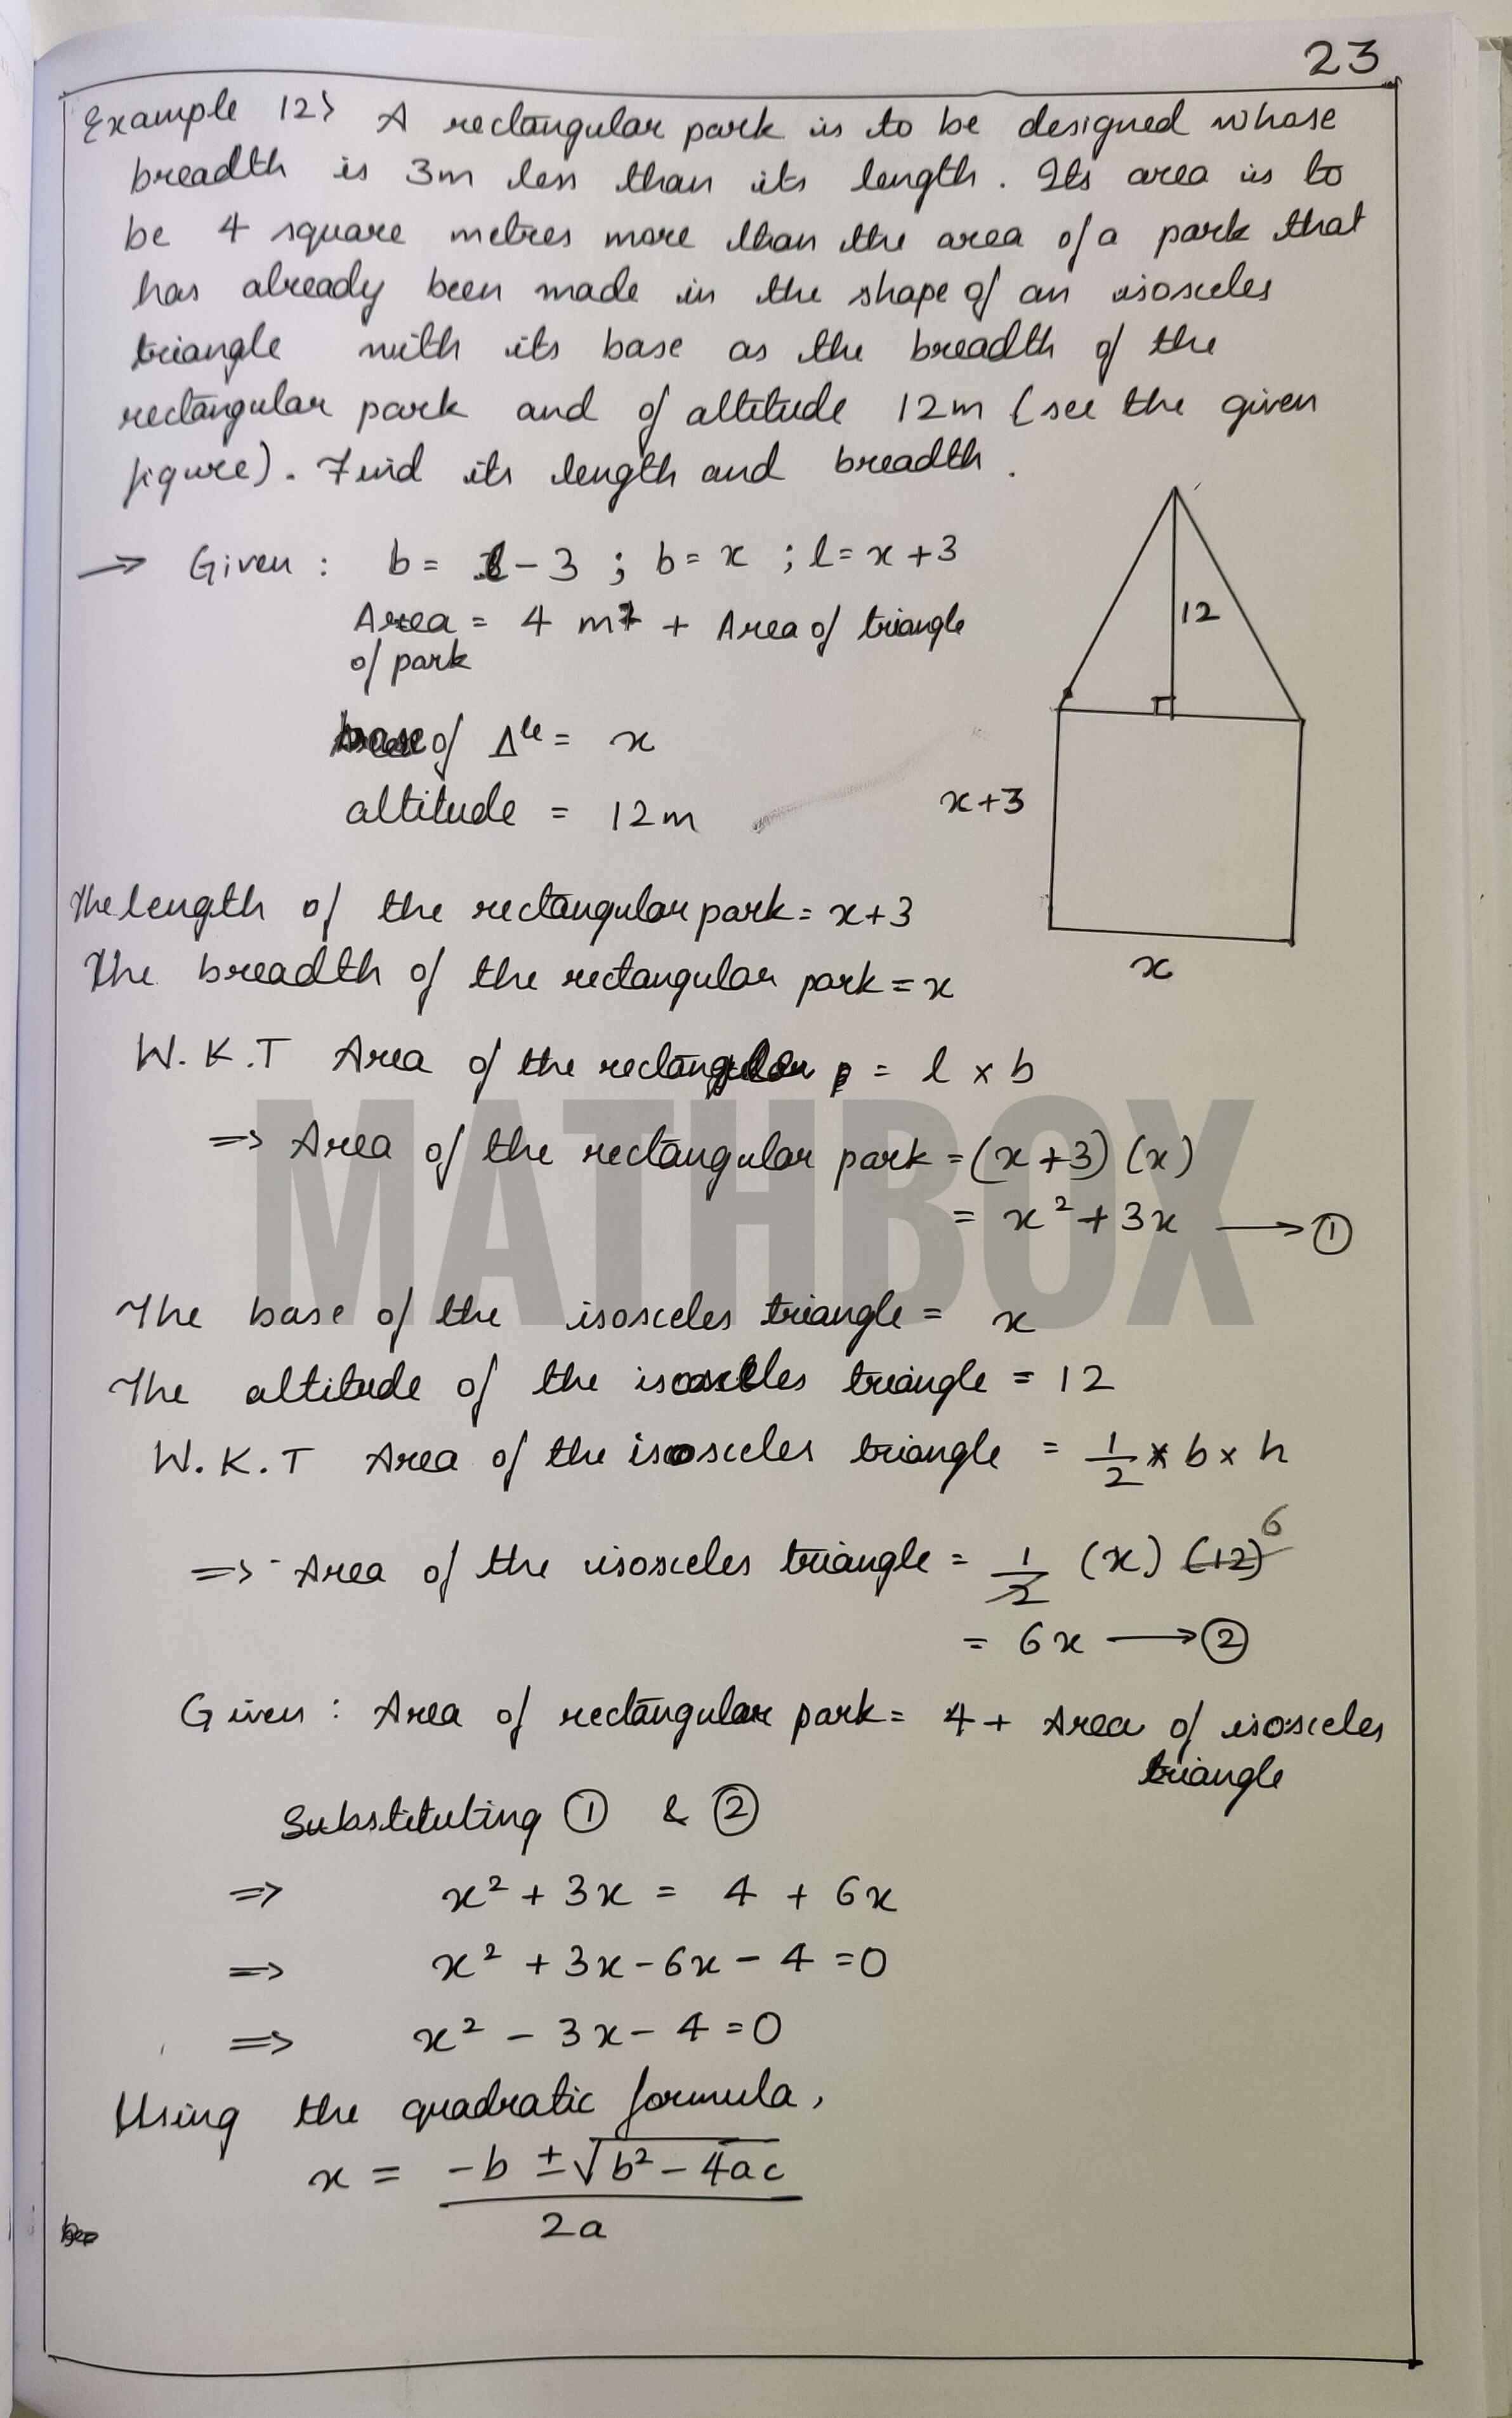 23
Example 12> A rectangular park is to be designed whose
breadth is 3m less than its length. Its area is to
be 4 square metres more than the area of a park that
has already been made in the shape of an isosceles
triangle with its base as the breadth of the
rectangular park and of altitude 12m (see the given
figure). Find its length and breadth.
→ Given : b = l - 3 ; b = x ; l = x + 3
Area = 4 m² + Area of triangle
of park
base of Δle = x
altitude = 12m
12
x+3
x
The length of the rectangular park = x+3
The breadth of the rectangular park = x
W.K.T Area of the rectangular p = l × b
⇒ Area of the rectangular park = (x+3) (x)
= x² + 3x → ①
MATHBOX
The base of the isosceles triangle = x
The altitude of the isosceles triangle = 12
W.K.T Area of the isosceles triangle = 1/2 × b × h
⇒ Area of the isosceles triangle = 1/2 (x) (12) 6
= 6x → ②
Given : Area of rectangular park = 4 + Area of isosceles
triangle
Substituting ① & ②
⇒ x² + 3x = 4 + 6x
⇒ x² + 3x - 6x - 4 = 0
⇒ x² - 3x - 4 = 0
Using the quadratic formula,
x = -b ± √b² - 4ac
2a